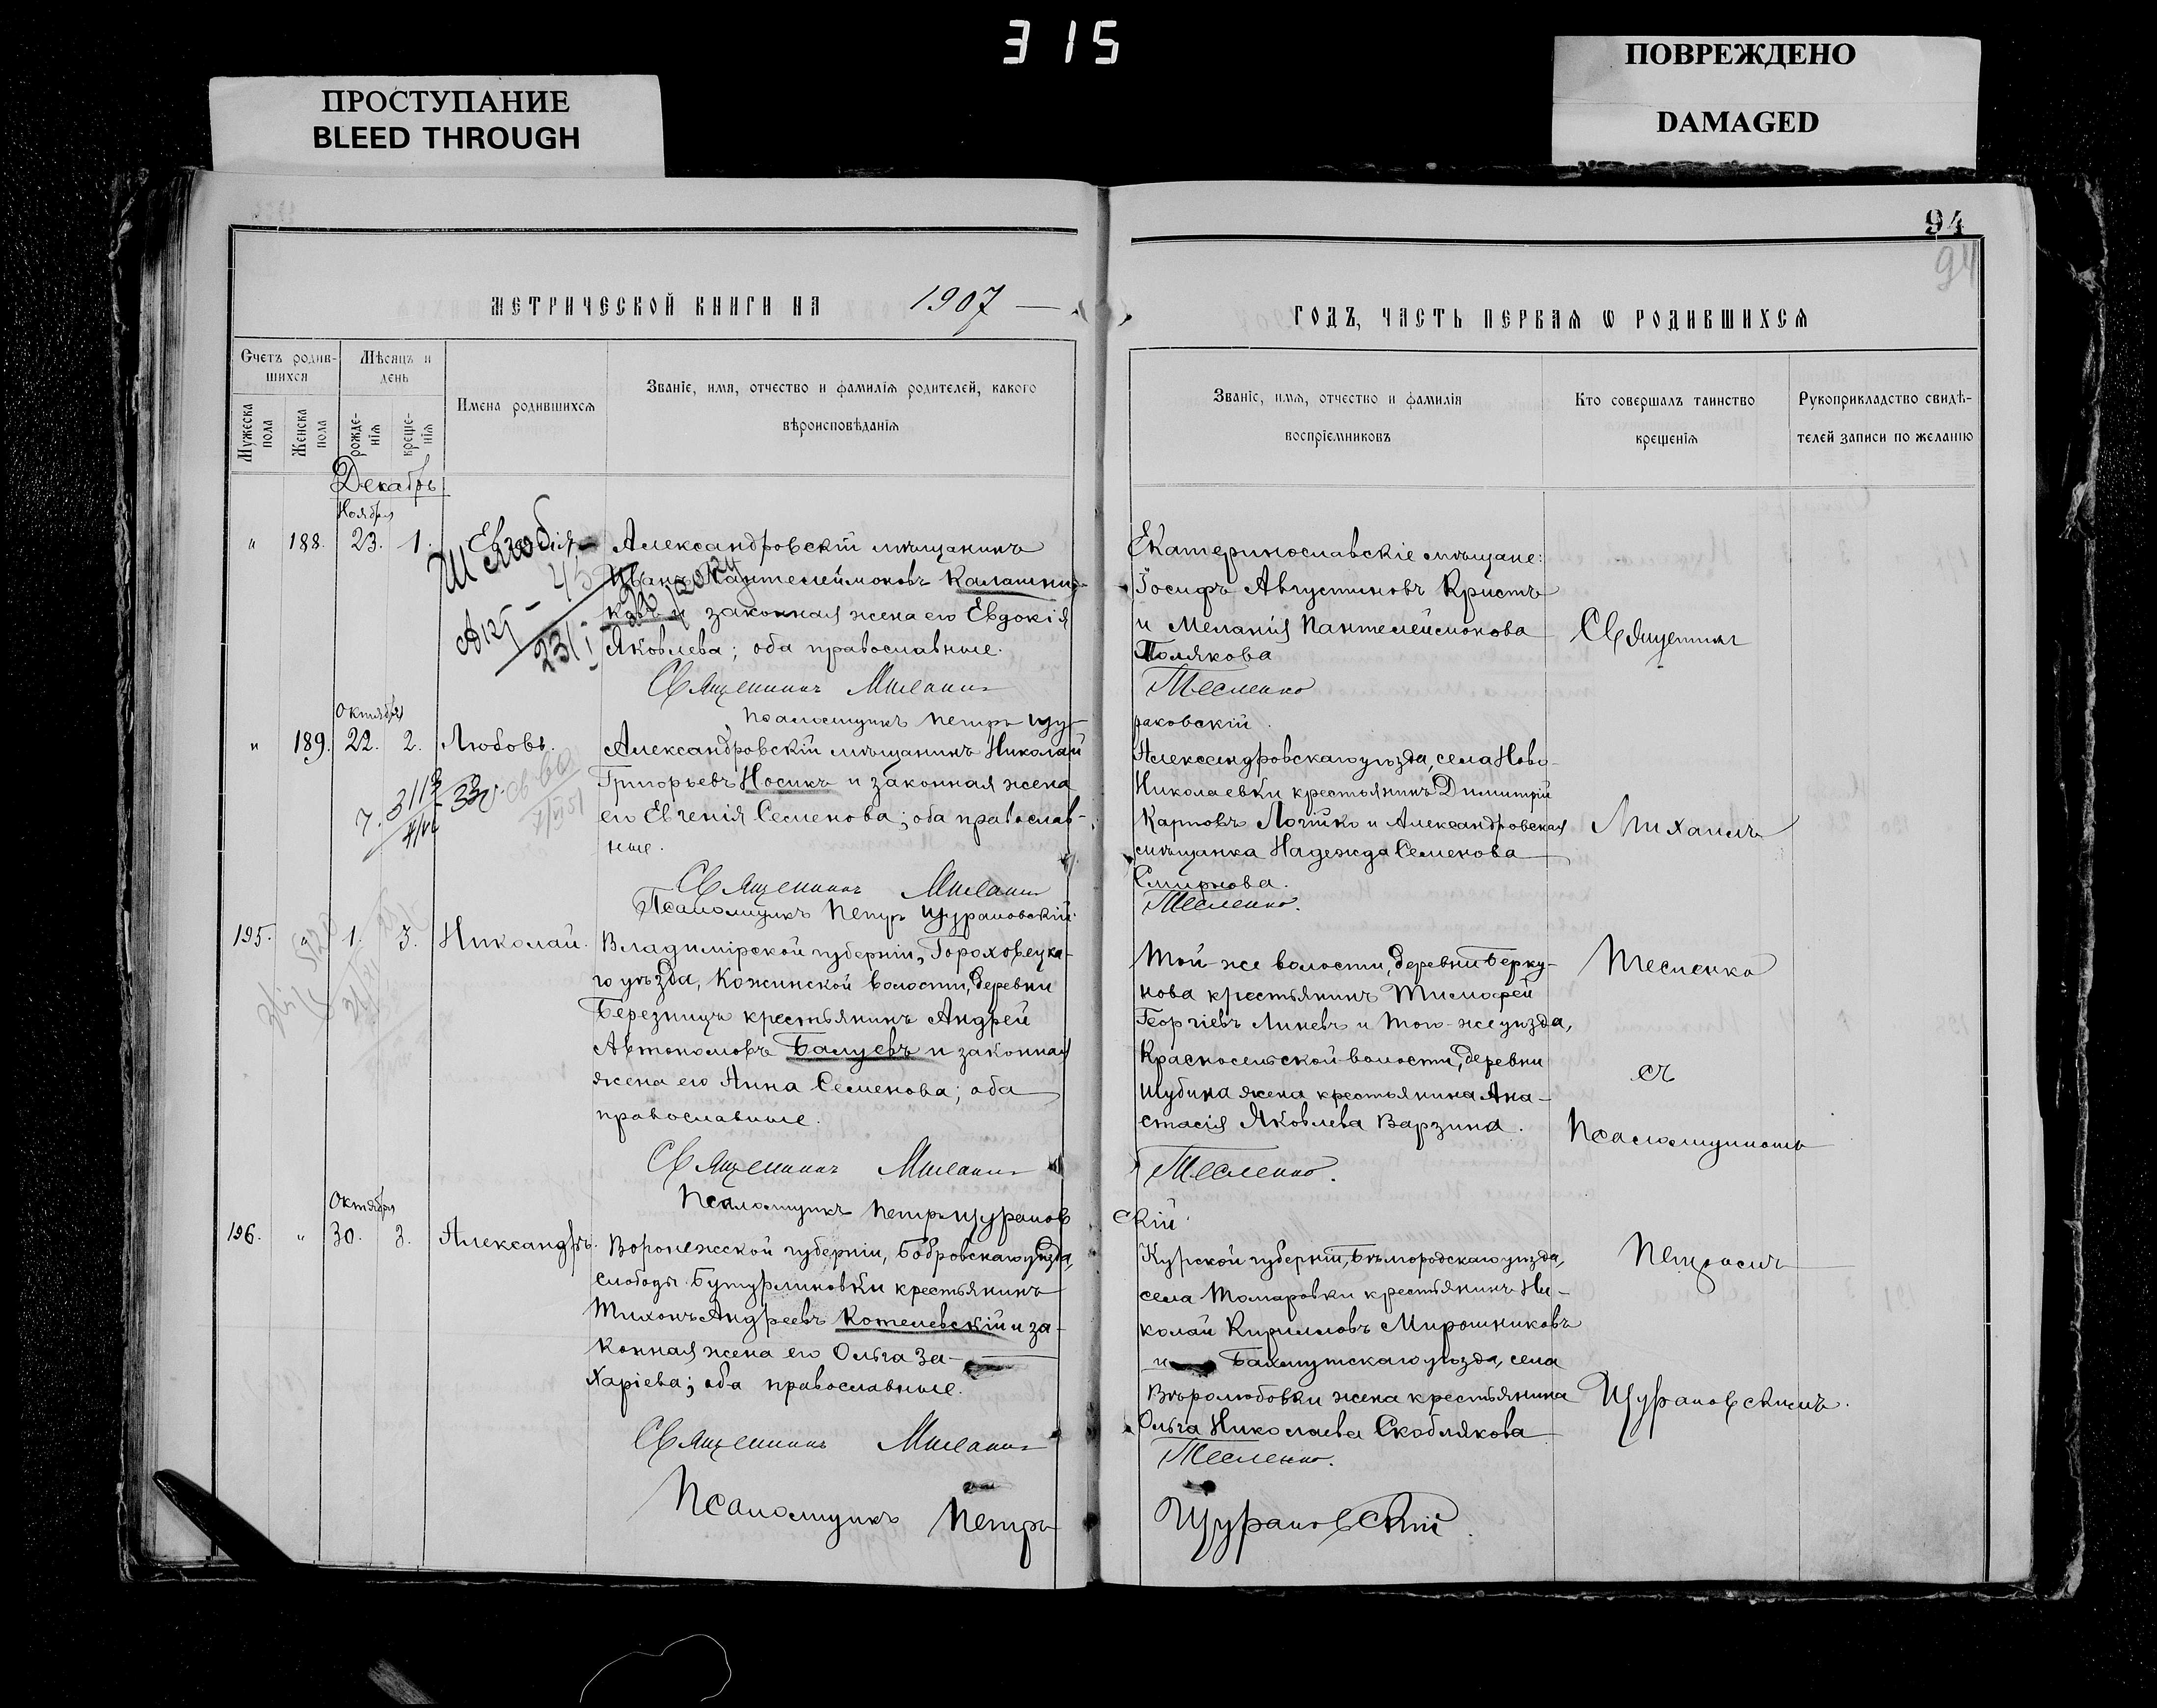 315
ПРОСТУПАНИЕ
BLEED THROUGH
ПОВРЕЖДЕНО
DAMAGED
94
94
МЕТРИЧЕСКОЙ КНИГИ НА 1907
ГОДЪ, ЧАСТЬ ПЕРВАЯ Ѡ РОДИВШИХСЯ
Счетъ родив-
шихся
Мѣсяцъ и
день
Имена родившихся
Званіе, имя, отчество и фамилія родителей, какого
вѣроисповѣданія
Мужеска
пола
Женска
пола
рожде-
нія
креще-
нія
Званіе, имя, отчество и фамилія
воспріемниковъ
Кто совершалъ таинство
крещенія
Рукоприкладство свидѣ-
телей записи по желанію
Декабрь
Ноября
" 188. 23. 1.
Александровскій мѣщанинъ
Иванъ Пантелеймоновъ Калашни-
ковъ и законная жена его Евдокія
Яковлева; оба православные.
Священникъ Михаилъ
Псаломщикъ Петръ Щу-
Екатеринославскіе мѣщане:
Іосифъ Августиновъ Кристъ
и Меланія Пантелеймонова
Полякова
Тесленко
раковскій.
Священникъ
Октября
" 189. 22. 2. Любовь.
Александровскій мѣщанинъ Николай
Григорьевъ Носикъ и законная жена
его Евгенія Семенова; оба православ-
ные.
Священникъ Михаилъ
Псаломщикъ Петръ Щураковскій.
Александровскаго уѣзда, села Ново-
Николаевки крестьянинъ Димитрій
Карповъ Логійко и Александровская
мѣщанка Надежда Семенова
Смирнова.
Тесленко.
Михаилъ
195. " 1. 3. Николай.
Владимірской губерніи, Гороховецка-
го уѣзда, Кожинской волости, деревни
Березницъ крестьянинъ Андрей
Автономовъ Балуевъ и законная
жена его Анна Семенова; оба
православные.
Священникъ Михаилъ
Псаломщикъ Петръ Щураков
Той-же волости, деревни Берку-
нова крестьянинъ Тимофей
Георгіевъ Линевъ и того-же уѣзда,
Красносельской волости, деревни
Шубина жена крестьянина Ана-
стасія Яковлева Варзина.
Тесленко.
скій.
Тесленко
съ
Псаломщикомъ
Октября
196. " 30. 3. Александръ.
Воронежской губерніи, Бобровскаго уѣзда,
слободы Бутурлиновки крестьянинъ
Тихонъ Андреевъ Котелевскій и за-
конная жена его Ольга За-
харіева; оба православные.
Священникъ Михаилъ
Псаломщикъ Петръ
Курской губерніи, Бѣлгородскаго уѣзда,
села Томаровки крестьянинъ Ни-
колай Кирилловъ Мирошниковъ
и Бахмутскаго уѣзда, села
Вѣролюбовки жена крестьянина
Ольга Николаева Скоблякова
Тесленко.
Щураковскій.
Петромъ
Щураковскимъ.